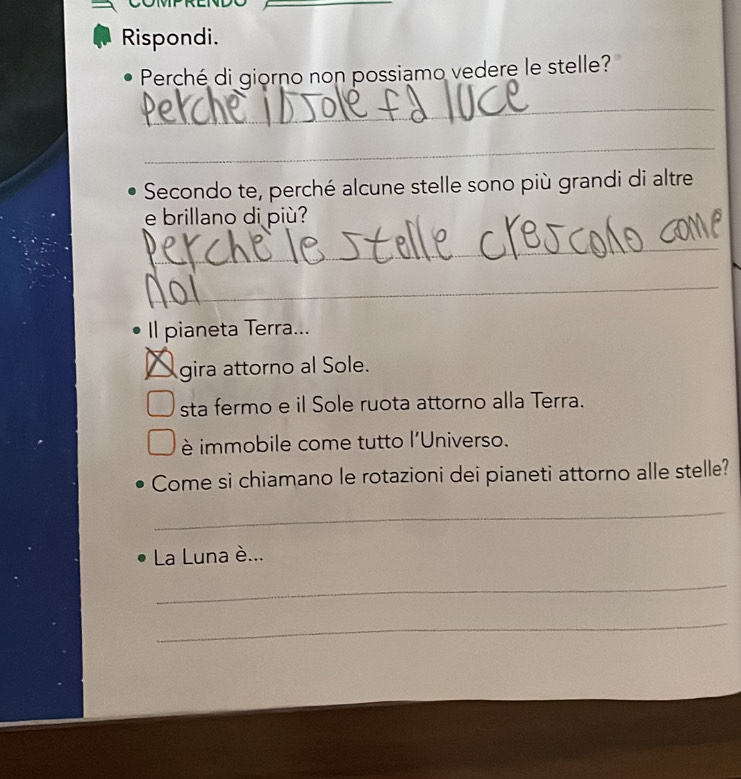 COMPRENDO
Rispondi.
• Perché di giorno non possiamo vedere le stelle?
Perchè il sole fa luce
• Secondo te, perché alcune stelle sono più grandi di altre
e brillano di più?
Perchè le stelle crescono come
noi
• Il pianeta Terra...
gira attorno al Sole.
sta fermo e il Sole ruota attorno alla Terra.
è immobile come tutto l'Universo.
• Come si chiamano le rotazioni dei pianeti attorno alle stelle?
• La Luna è...